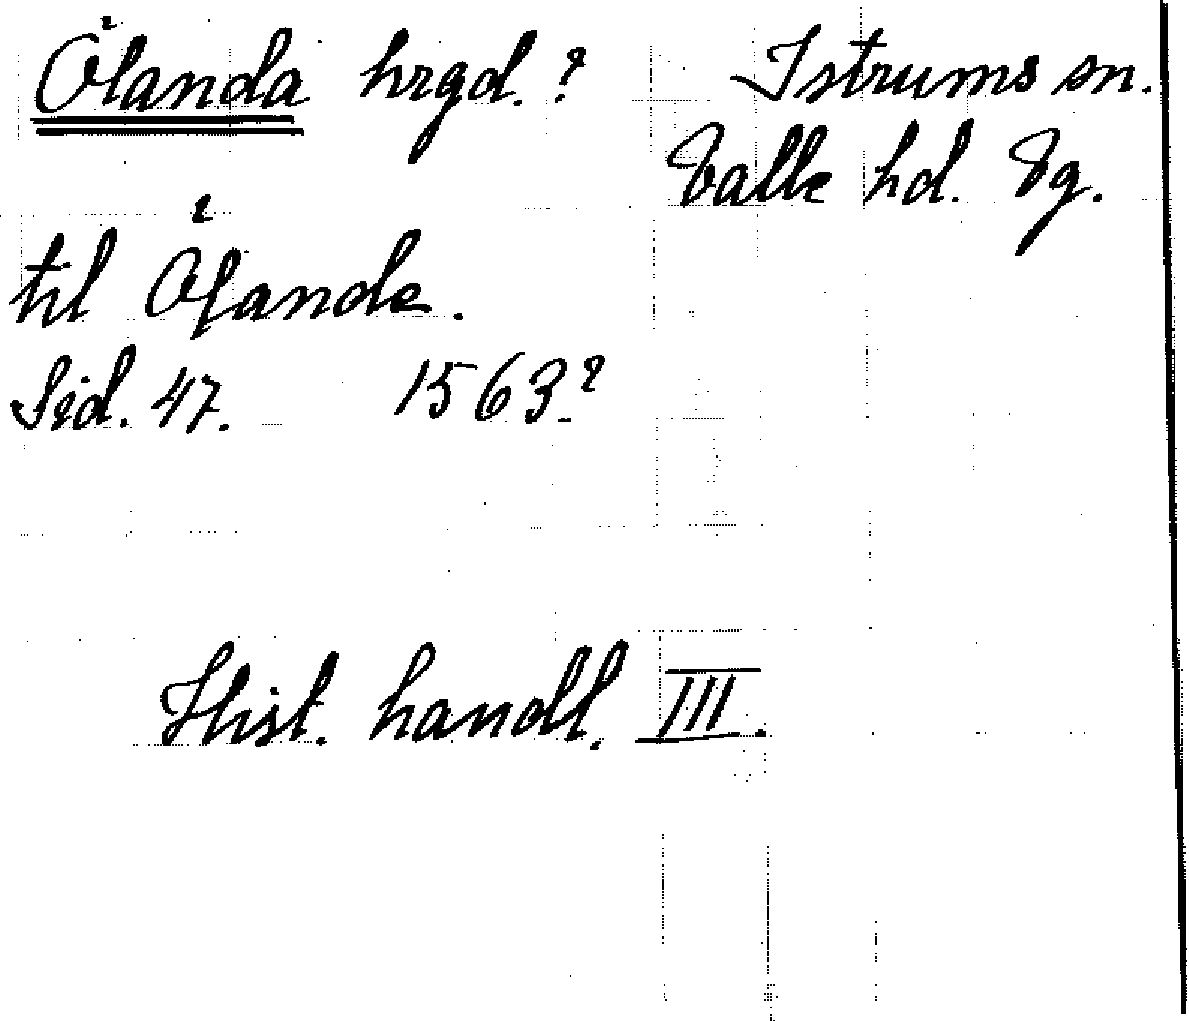 Ölanda hrgd. ? Istrums sn.
Valle hd. Vg.
til Öfande.
Sid. 47. 1563.?
Hist. handl. III.